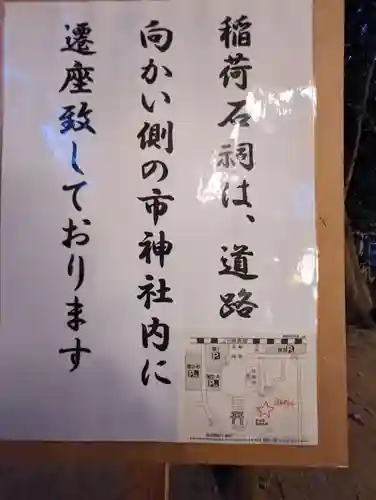 稲荷石祠は、道路
向かい側の市神社内に
遷座致しております